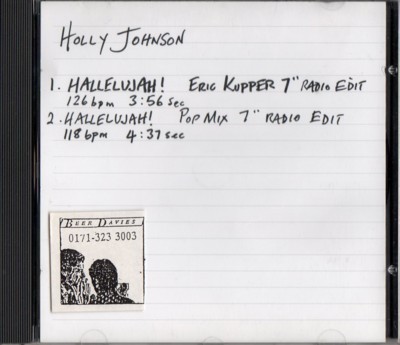 HOLLY JOHNSON
1. HALLELUJAH! ERIC KUPPER 7" RADIO EDIT
126 bpm 3:56 sec
2. HALLELUJAH! POP MIX 7" RADIO EDIT
118 bpm 4:37 sec
BEER DAVIES
0171-323 3003